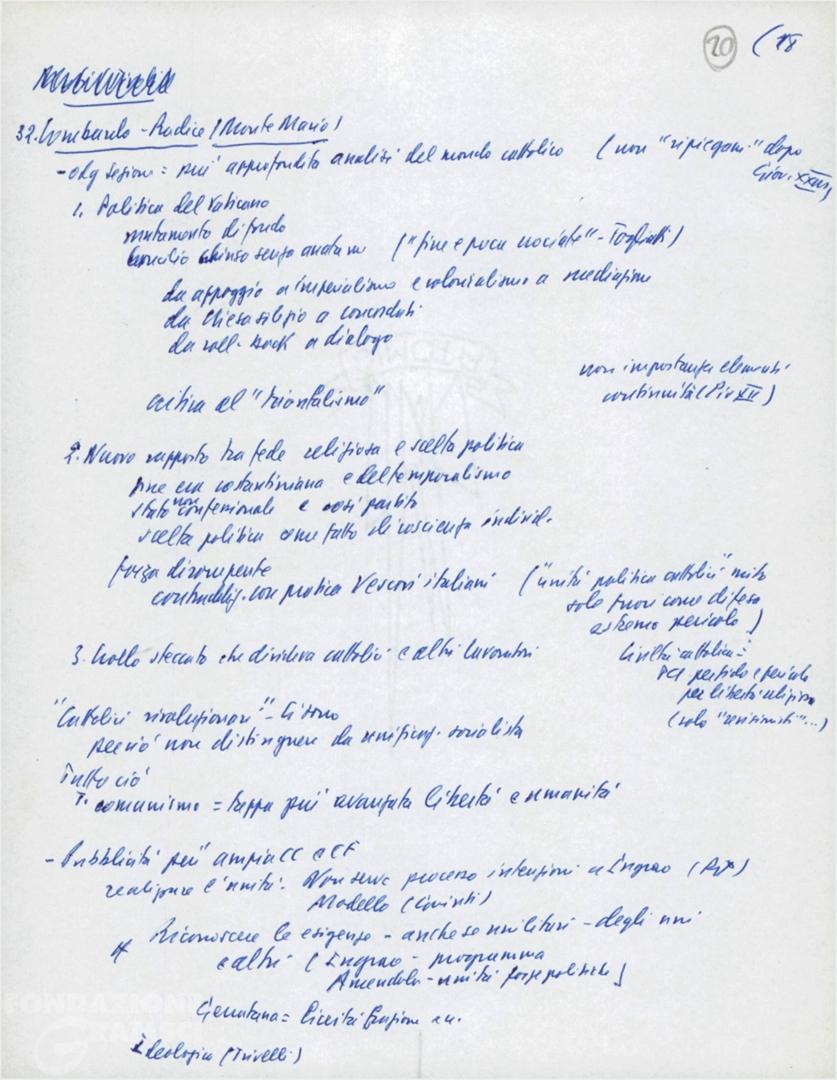 20 (18
32. Lombardo-Radice (Monte Mario)
- odg sezione = più approfondita analisi del mondo cattolico (non "ripiegam." dopo
Giov. XXIII)
1. Politica del Vaticano
mutamento di fondo
Concilio chiuso senza anatemi ("fine e poca" - Togliatti)
da appoggio a imperialismo e colonialismo a mediazione
da Chiesa silenzio a concordati
da roll-back a dialogo
non importanza elementi
continuità (Pio XII)
critica al "trionfalismo"
2. Nuovo rapporto tra fede religiosa e scelta politica
fine era costantiniana e del temporalismo
stato non confessionale e così partito
scelta politica come fatto di coscienza individ.
forza dirompente
contraddiz. con pratica Vescovi italiani ("unità politica cattolici"
solo come difesa
estremo pericolo)
3. Crollo steccato che divideva cattolici e altri lavoratori
Civiltà cattolica =
PCI pericolo
per libertà religiosa
(solo "revisionisti"...)
"Cattolici rivoluzionari" - Ci sono
perciò non distinguere da unificaz. socialista
Tutto ciò
comunismo = tappa più avanzata libertà e umanità
- Pubblicità più ampia CC e CF
realizzare l'unità. Non serve processo intenzioni a Ingrao
Modello
Riconoscere le esigenze - anche se unilaterali - degli uni
e altri (Ingrao - programma
Amendola - unità forze politiche)
= Liceità frazione
Ideologia (Trivelli)
FONDAZIONE
GRAMSCI